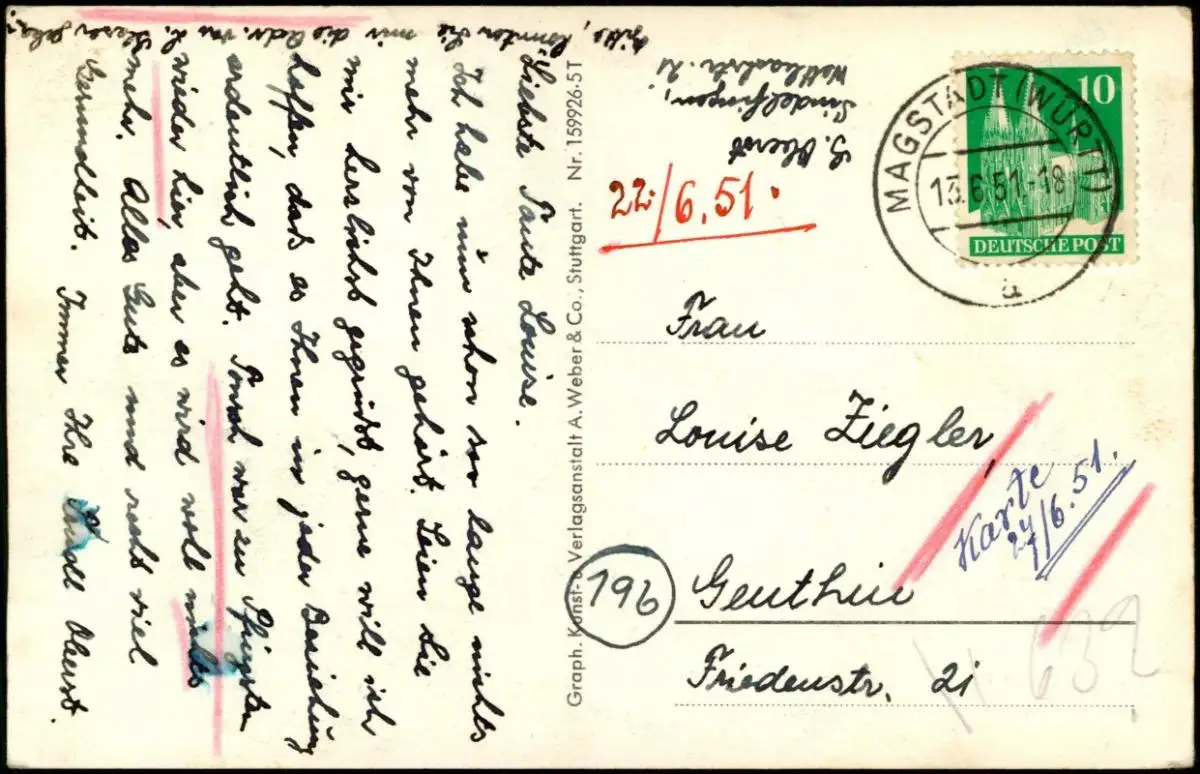 Liebste Tante Louise.
Ich habe nun schon so lange nichts
mehr von Ihnen gehört. Seien Sie
mir herzlichst gegrüßt, gerne will ich
hoffen, daß es Ihnen in jeder Beziehung
ordentlich geht. war zu Pfingsten
wieder hier, aber es wird wohl nichts
mehr. Alles Gute und recht viel
Gesundheit. Immer Ihre Oberst.
Bitte, könnten Sie mir die Adr. von
Graph. Kunst- u. Verlagsanstalt A. Weber & Co., Stuttgart. Nr. 159926·5 T
Oberst
Sindelfingen,
22./6.51.
MAGSTADT (WÜRTT)
13.6.51.-18
a
10
DEUTSCHE POST
Frau
Louise Ziegler,
Karte
27/6.51.
196
Genthin
Friedenstr. 21
632